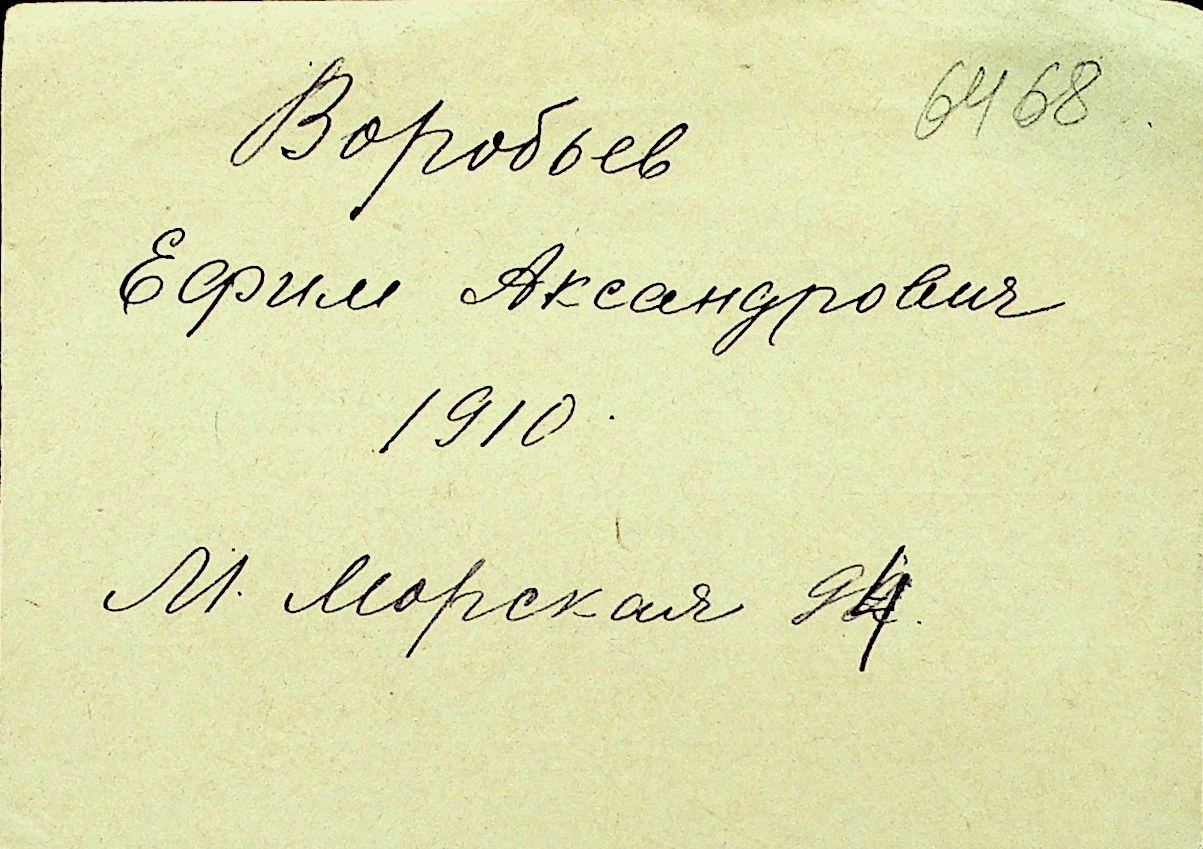 6468
Воробьев
Ефим Аксандрович
1910
М. Морская